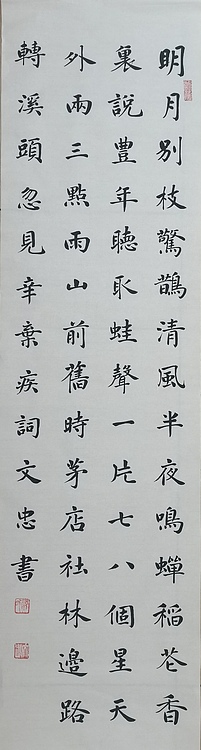 明月别枝驚鵲清風半夜鳴蟬稻花香
裏說豊年聽取蛙聲一片七八個星天
外兩三點雨山前舊時茅店社林邊路
轉溪頭忽見辛棄疾詞文忠書